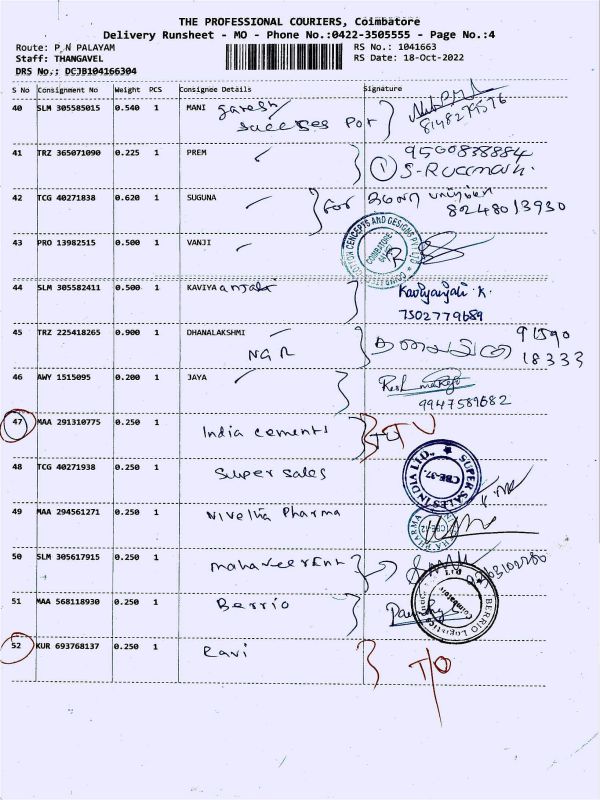 THE PROFESSIONAL COURIERS, Coimbatore
Delivery Runsheet - MO - Phone No.:0422-3505555 - Page No.:4
Route: P N PALAYAM
RS No.: 1041663
Staff: THANGAVEL
RS Date: 18-Oct-2022
DRS No.: DCJB104166304
S No Consignment No Weight PCS Consignee Details Signature
40 SLM 305585015 0.540 1 MANI ganesh
success Pot
41 TRZ 365071090 0.225 1 PREM 9500838884
42 TCG 40271838 0.620 1 SUGUNA For
80248013930
43 PRO 13982515 0.500 1 VANJI
COTTON CONCEPTS AND DESIGNS PVT LTD
COIMBATORE
44 SLM 305582411 0.500 1 KAVIYA anjali Kaviyanjali K.
7502779689
45 TRZ 225418265 0.900 1 DHANALAKSHMI 91590
NGR 18333
46 AWY 1515095 0.200 1 JAYA
9947589682
47 MAA 291310775 0.250 1 India cements
48 TCG 40271938 0.250 1 Super sales
SUPER SALES INDIA LTD.
CBE-37.
49 MAA 294561271 0.250 1 Nivetha Pharma
PHARMA
50 SLM 305617915 0.250 1
51 MAA 568118930 0.250 1 Berrio
BERRIO Logistics
Coimbatore
52 KUR 693768137 0.250 1 Ravi T/O